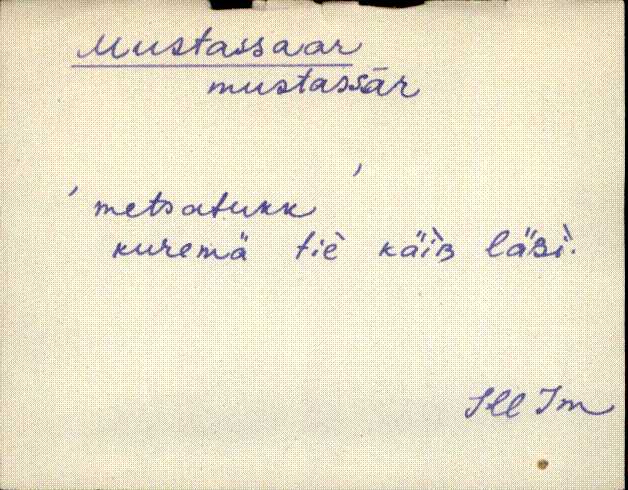 Mustassaar
mustassār
' metsatukk '
kuremä tiè käìʙ läʙì.
Hll Jm